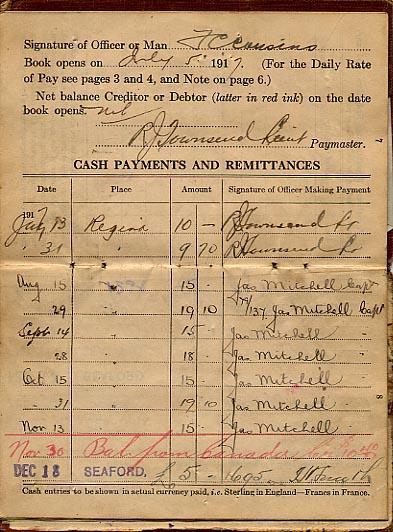 Signature of Officer or Man F C Cousins
Book opens on July 5 1917. (For the Daily Rate
of Pay see pages 3 and 4, and Note on page 6.)
Net balance Creditor or Debtor (latter in red ink) on the date
book opens. nil
R J Townsend Lieut Paymaster.
7
CASH PAYMENTS AND REMITTANCES
Date Place Amount Signature of Officer Making Payment
1917
July 13 Regina 10 — R J Townsend Lt
" 31 " 9 70 R J Townsend Lt
Aug 15 " 15 - Jas Mitchell Capt
29 " 19 10 79/137 Jas Mitchell Capt
Sept 14 " 15 - Jas Mitchell
28 " 18 - Jas Mitchell
Oct 15 " 15 - Jas Mitchell
" 31 " 19 10 Jas Mitchell
8
Nov 13 " 15 - Jas Mitchell
Nov 30 Bal. from Canada 40
DEC 18 SEAFORD. £5 - 1695
Cash entries to be shown in actual currency paid, i.e. Sterling in England—Francs in France.